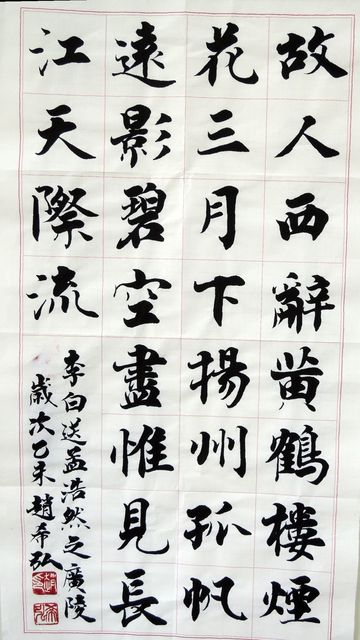 故人西辭黃鶴樓煙
花三月下揚州孤帆
遠影碧空盡惟見長
江天際流
李白送孟浩然之廣陵
歲次乙未趙希弘